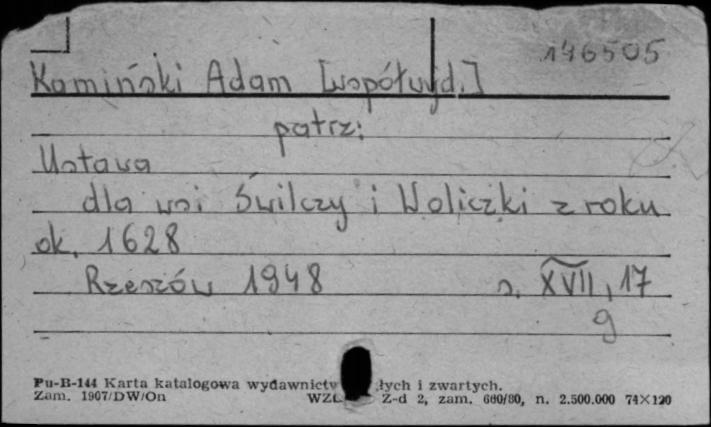 146505
Kamiński Adam [współwyd.]
patrz:
Ustawa
dla wsi Świlczy i Woliczki z roku
ok. 1628
Rzeszów 1948 s. XVII, 17
g
Pu-B-144 Karta katalogowa wydawnictw łych i zwartych.
Zam. 1907/DW/On WZ Z-d 2, zam. 660/80, n. 2.500.000 74×120